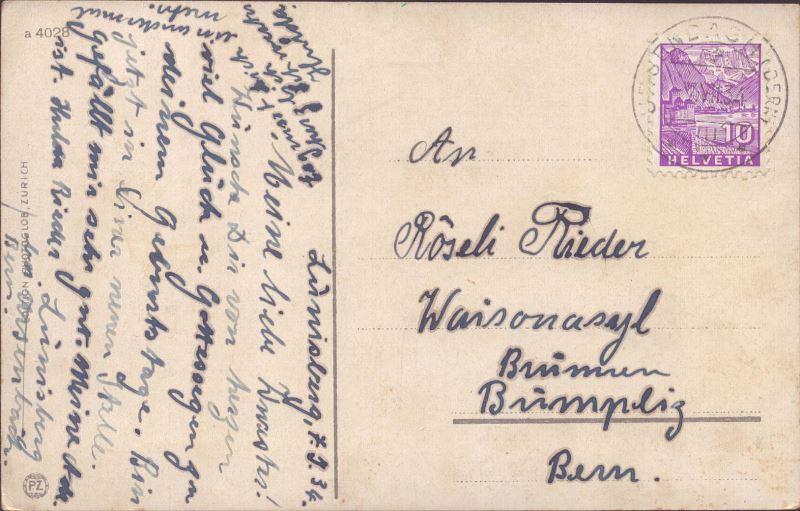 a 4028
Lünisberg, 7. 9. 34.
Meine liebe Schwester!
Wünsche Dir von Herzen
viel Glück u. Gottessegen zu
deinem Geburtstage. Bin
jetzt in einer neuen Stelle.
Gefällt mir sehr gut. Meine Adr.
ist. Hulda Rieder Lünisberg
Bern.
ein andermal
mehr.
An
Röseli Rieder
Waisonasyl
Brünnen
Bümpliz
Bern.
PHOTOGLOB, ZÜRICH
PZ
10
HELVETIA
(BERN)